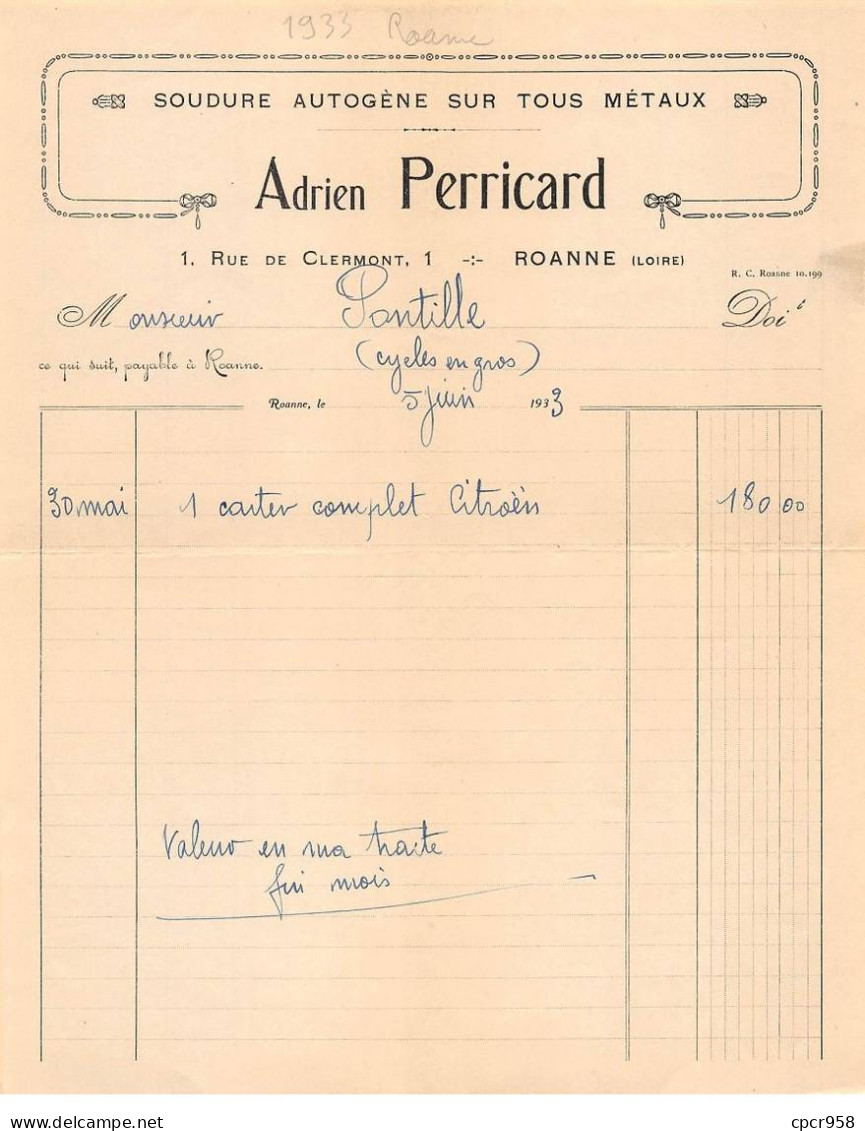 1933 Roanne
SOUDURE AUTOGÈNE SUR TOUS MÉTAUX
Adrien Perricard
1, RUE DE CLERMONT, 1 -:- ROANNE (LOIRE)
R. C. Roanne 10.199
Monsieur Pontille Doit
ce qui suit, payable à Roanne. (cycles en gros)
Roanne, le 5 juin 1933
30 mai 1 carter complet Citroën 180 00
Valeur en ma traite
fin mois
cpcr958